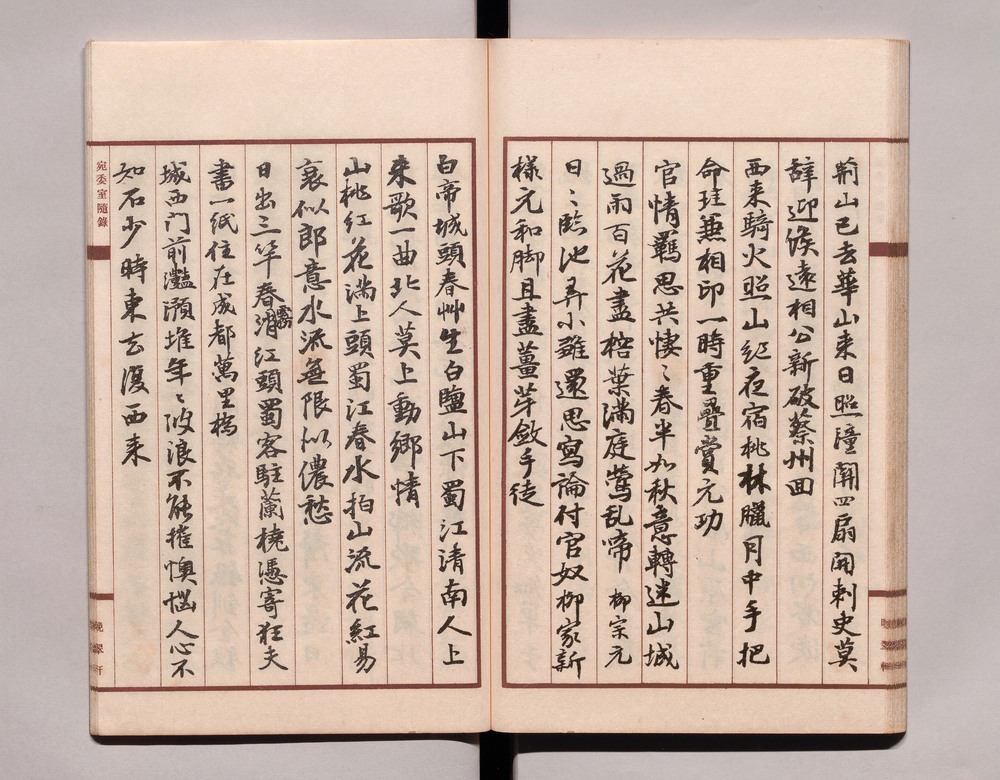 荊山已去華山来日照潼關四扇開刺史莫
辞迎候遠相公新破蔡州回
西来騎火照山紅夜宿桃林臘月中手把
命珪兼相印一時重疊賞元功
官情羈思共悽〻春半如秋意轉迷山城
過雨百花盡榕葉滿庭鶯乱啼 柳宗元
日〻臨池弄小雛還思寫論付官奴柳家新
樣元和脚且盡薑芽斂手徒
白帝城頭春艸生白鹽山下蜀江清南人上
来歌一曲北人莫上動鄉情
山桃紅花滿上頭蜀江春水拍山流花紅易
衰似郎意水流無限似儂愁
日出三竿春霧消江頭蜀客駐蘭橈憑寄狂夫
書一紙住在成都萬里橋
城西门前灩澦堆年〻波浪不能摧懊惱人心不
如石少時東去復西来
宛委室隨錄